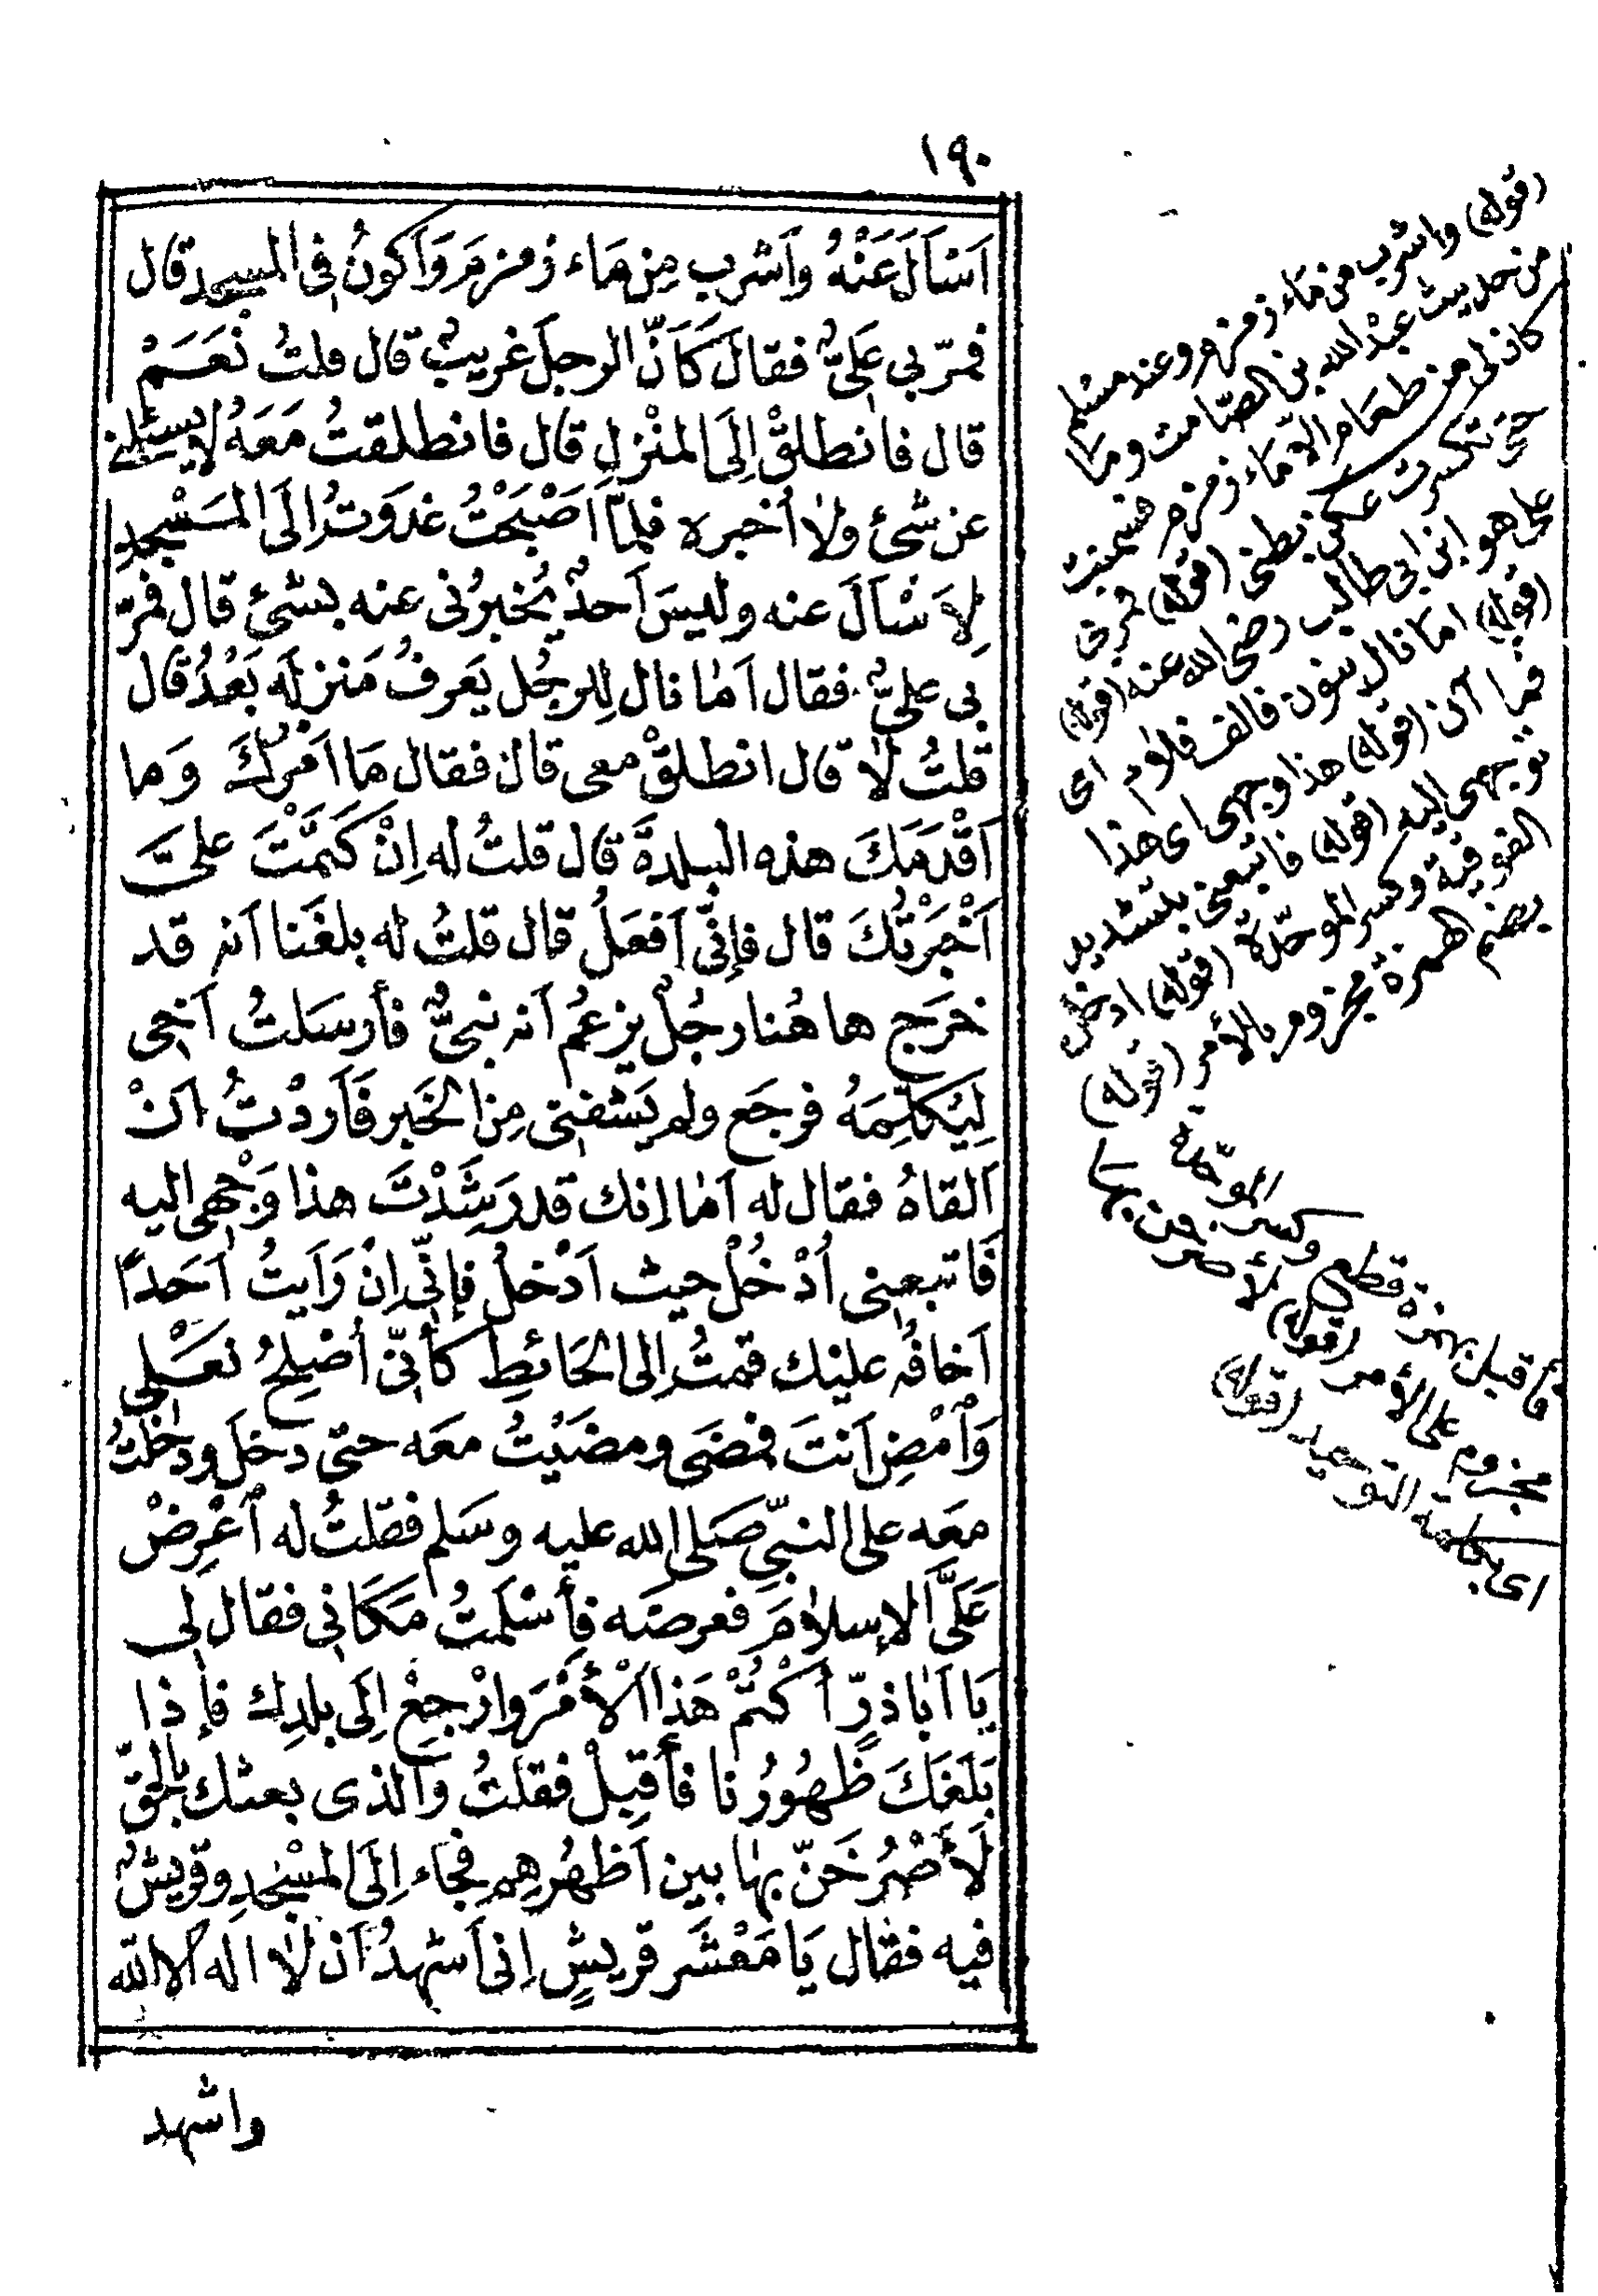 ١٩٠
اَسْاَلَ عَنْهُ وَاَشْرب مِن مَاء زمزمَ وَاَكونُ فى المسجد قال
فمرّ بى عَلىٌّ فقالَ كَاَنَّ الرجلَ غريبٌ قال قلتُ نَعَمْ
قال فانطلقْ اِلَى المنْزلِ قال فانطلقتُ مَعَهُ لا يسئلنى
عن شئ ولا اُخبره فلمّا اَصْبَحْتُ غدَوتُ الَى المَسْجدِ
لِاَسْاَلَ عنه وليسَ اَحدٌ يُخبرُنى عنه بشئٍ قال فمرّ
بى علىٌّ فقال اَمَا نال لِلرجُل يَعرفُ مَنزلَه بَعْدُ قال
قلتُ لا قال انطلقْ معى قال فقال مَا اَمْرُكَ وَما
اَقْدَمَكَ هذه البلدةَ قال قلتُ له اِنْ كَتَمْتَ علىَّ
اَخْبَرْتُكَ قال فاِنّى اَفعَلُ قال قلتُ له بلغَنا اَنه قد
خرَج هاهُنا رجُلٌ يزعُم اَنه نبىٌّ فأرسَلتُ اَخى
لِيُكلّمَهُ فرجَع ولم يَشفنى مِن الخَبر فَاَردْتُ اَنْ
اَلقاهُ فقال له اَمَا اِنك قد رَشَدْتَ هذا وَجْهى اليه
فَاتبعنى اُدْخُلْ حيث اَدْخلُ فاِنّى اِنْ رَاَيتُ اَحَدًا
اَخافُه عليك قمتُ اِلى الحَائطِ كأنّى اُصْلِحُ نَعْلى
وَاْمْضِ اَنتَ فمضَى ومضَيْتُ معَه حتى دخلَ ودخلتُ
معَه على النبىّ صَلى الله عليه وسَلم فقلتُ له اْعْرِضْ
عَلَىَّ الإسلامَ فعرضَه فأسْلَمتُ مَكَانى فقال لى
يَا اَبا ذرٍّ اُكْتُمْ هَذا اْلأَمْرَ وارْجعْ اِلَى بلدِك فإذا
بَلَغَكَ ظُهُورُنا فأَقبِلْ فقلتُ والذى بعثك بالحقّ
لَأَصْرُخَنّ بها بين اَظهُرِهِم فجاء اِلَى المسْجدِ وقريشٌ
فيه فقال يَا مَعْشَر قريشٍ اِنى اَشهدُ اَن لا اله الا الله
واشهد
(قوله) واشرب من ماء زمزم وعند مسلم
من حديث عبد الله بن الصّامت وما
كان لى من طعام الا ماء زمزم فسمنت
حتى تكسرت عكن بطنى (قوله) فمرّ بى
على هو ابن ابى طالب رضى الله عنه (قوله)
(قوله) اما نال بنون فالف فلام اى
فما آن (قوله) هذا وجهى اى هذا
توجهى اليه (قوله) فاتبعنى بتشديد
الفوقية وكسر الموحّدة (قوله) ادخل
بضم الهمزة مجزوم بالأمر (قوله)
فأقبل بهمزة قطع وكسر الموحّدة
مجزوم على الأمر (قوله) لأصرخن بها
اى بكلمة التوحيد (قوله)